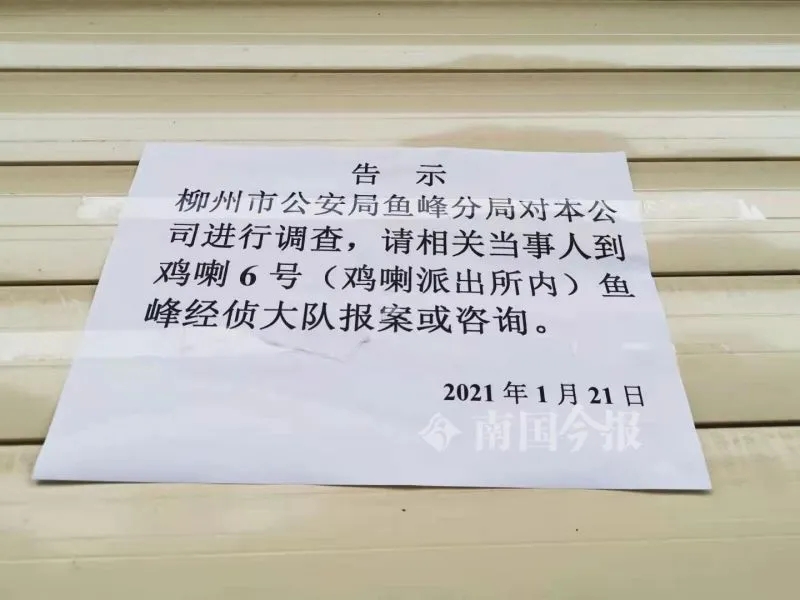 告 示
柳州市公安局鱼峰分局对本公
司进行调查，请相关当事人到
鸡喇 6 号（鸡喇派出所内）鱼
峰经侦大队报案或咨询。
2021 年 1 月 21 日
南国今报